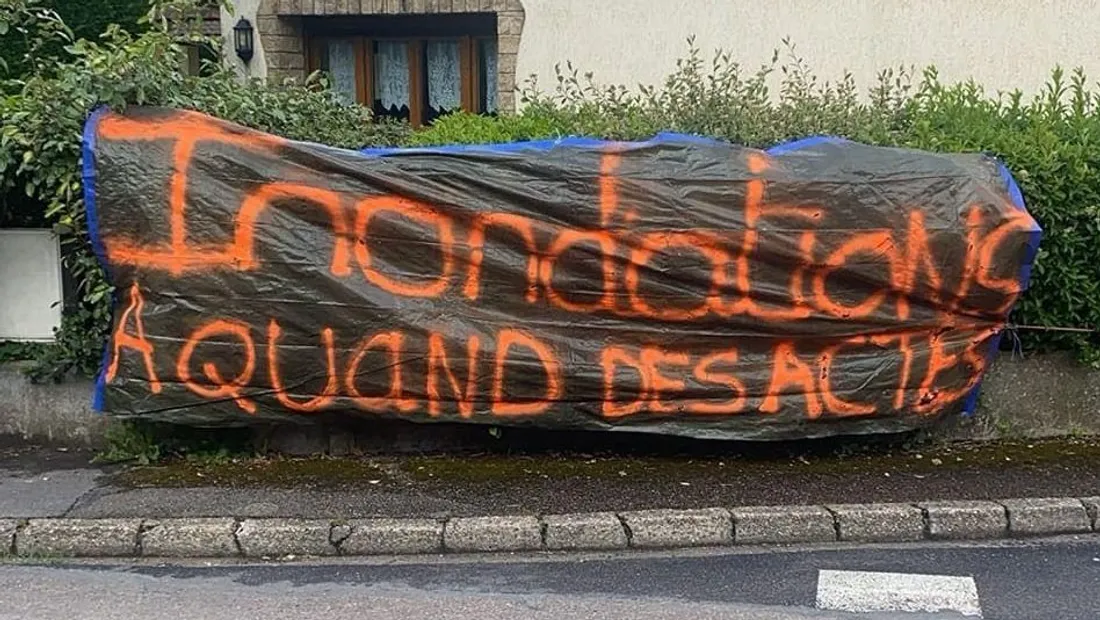 Inondations
À QUAND DES ACTES